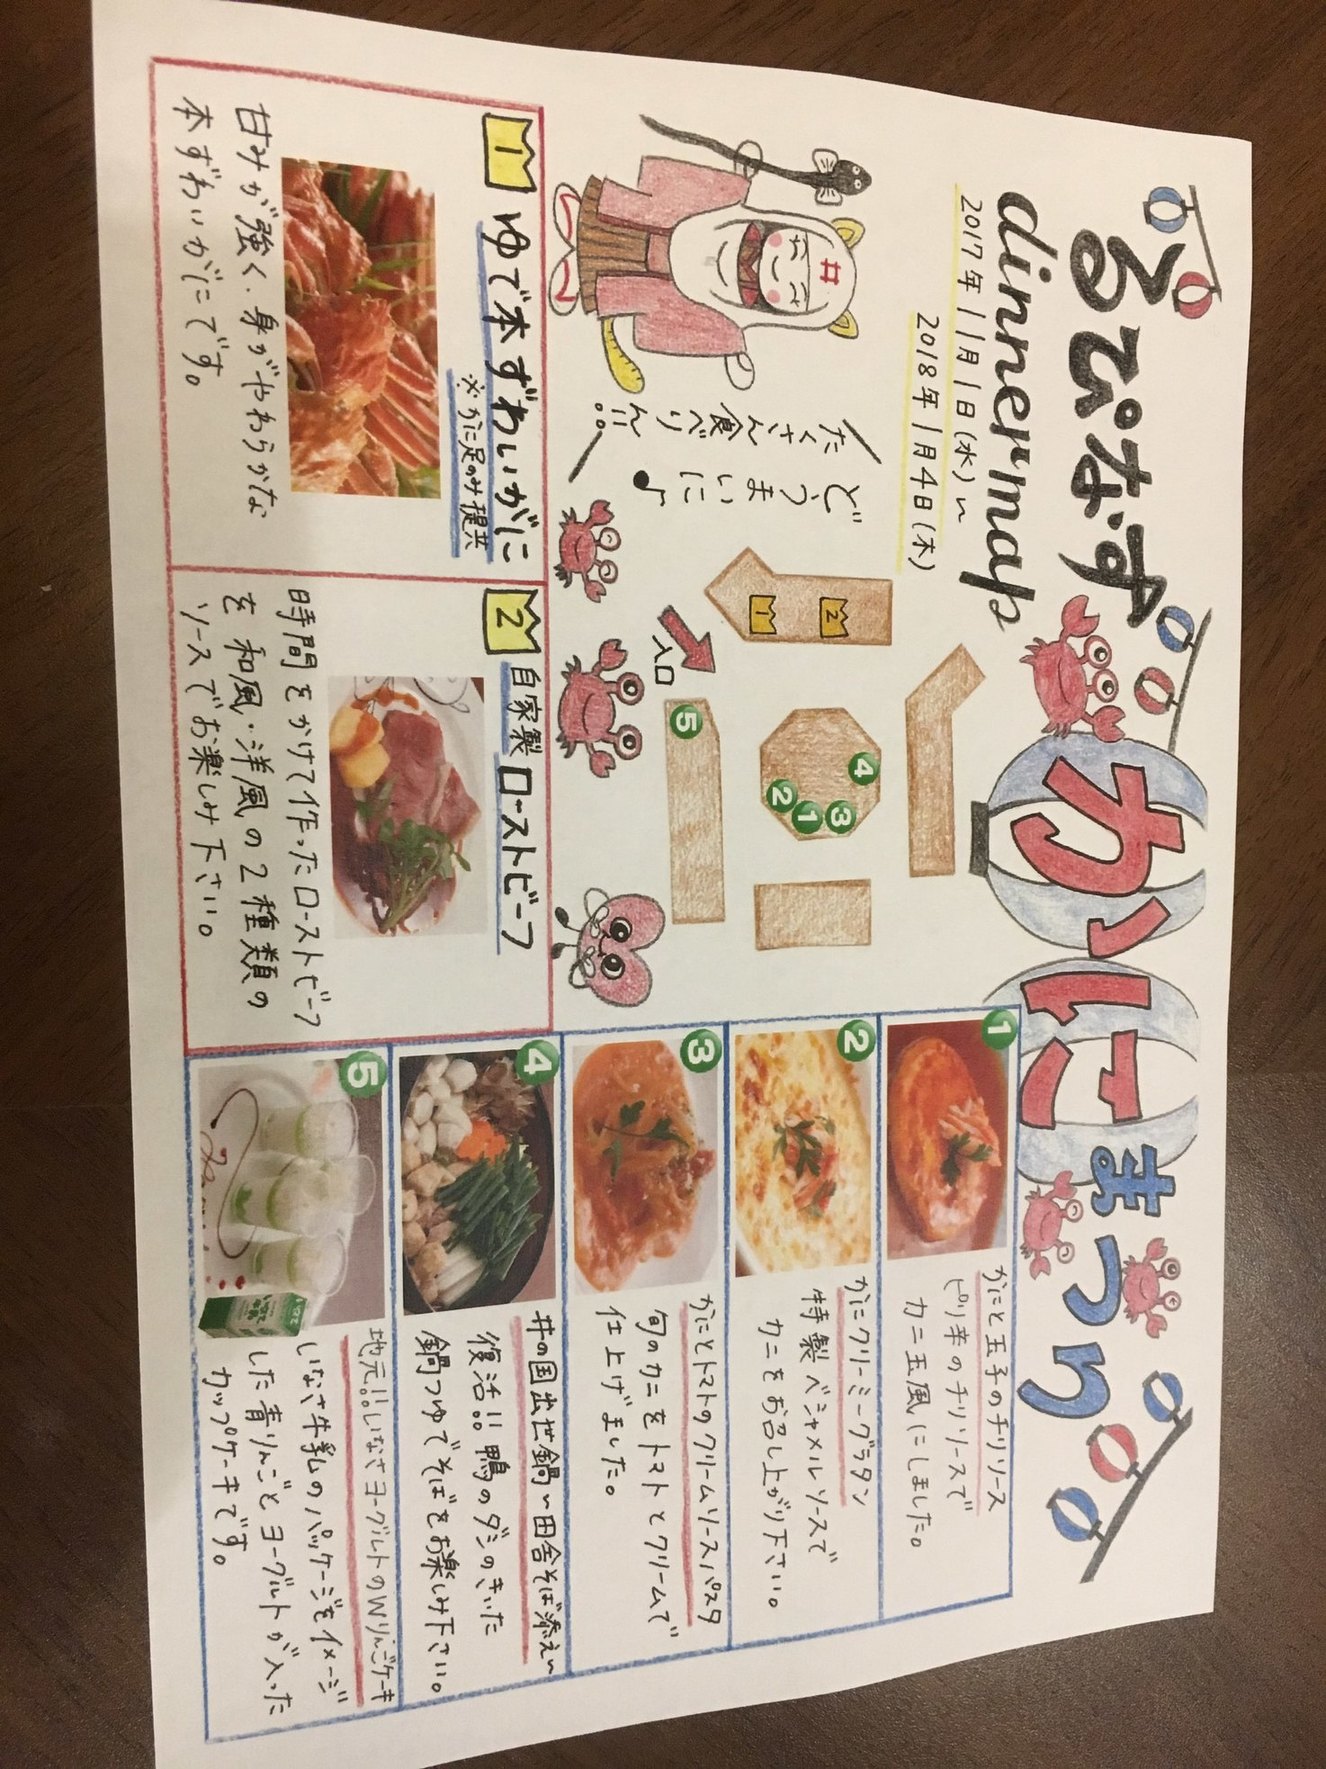 るぴなす
かにまつり
dinner map
2017年11月1日(水)〜
2018年1月4日(木)
井
たくさん食べりん!!
どうまいに♪
1
2
入口
4
3
1
2
5
1 ゆで本ずわいがに
※かに足のみ提供
甘みが強く、身がやわらかな
本ずわいがにです。
2 自家製ローストビーフ
時間をかけて作ったローストビーフ
を和風・洋風の2種類の
ソースでお楽しみ下さい。
1
かにと玉子のチリソース
ピリ辛のチリソースで
カニ玉風にしました。
2
かにクリーミーグラタン
特製ベシャメルソースで
カニをお召し上がり下さい。
3
かにとトマトのクリームソースパスタ
旬のカニをトマトとクリームで
仕上げました。
4
井の国出世鍋〜田舎そば添え〜
復活!!鴨のダシのきいた
鍋つゆでそばをお楽しみ下さい。
5
地元!!いなさヨーグルトのWりんごケーキ
いなさ牛乳のパッケージをイメージ
した青りんごとヨーグルトが入った
カップケーキです。